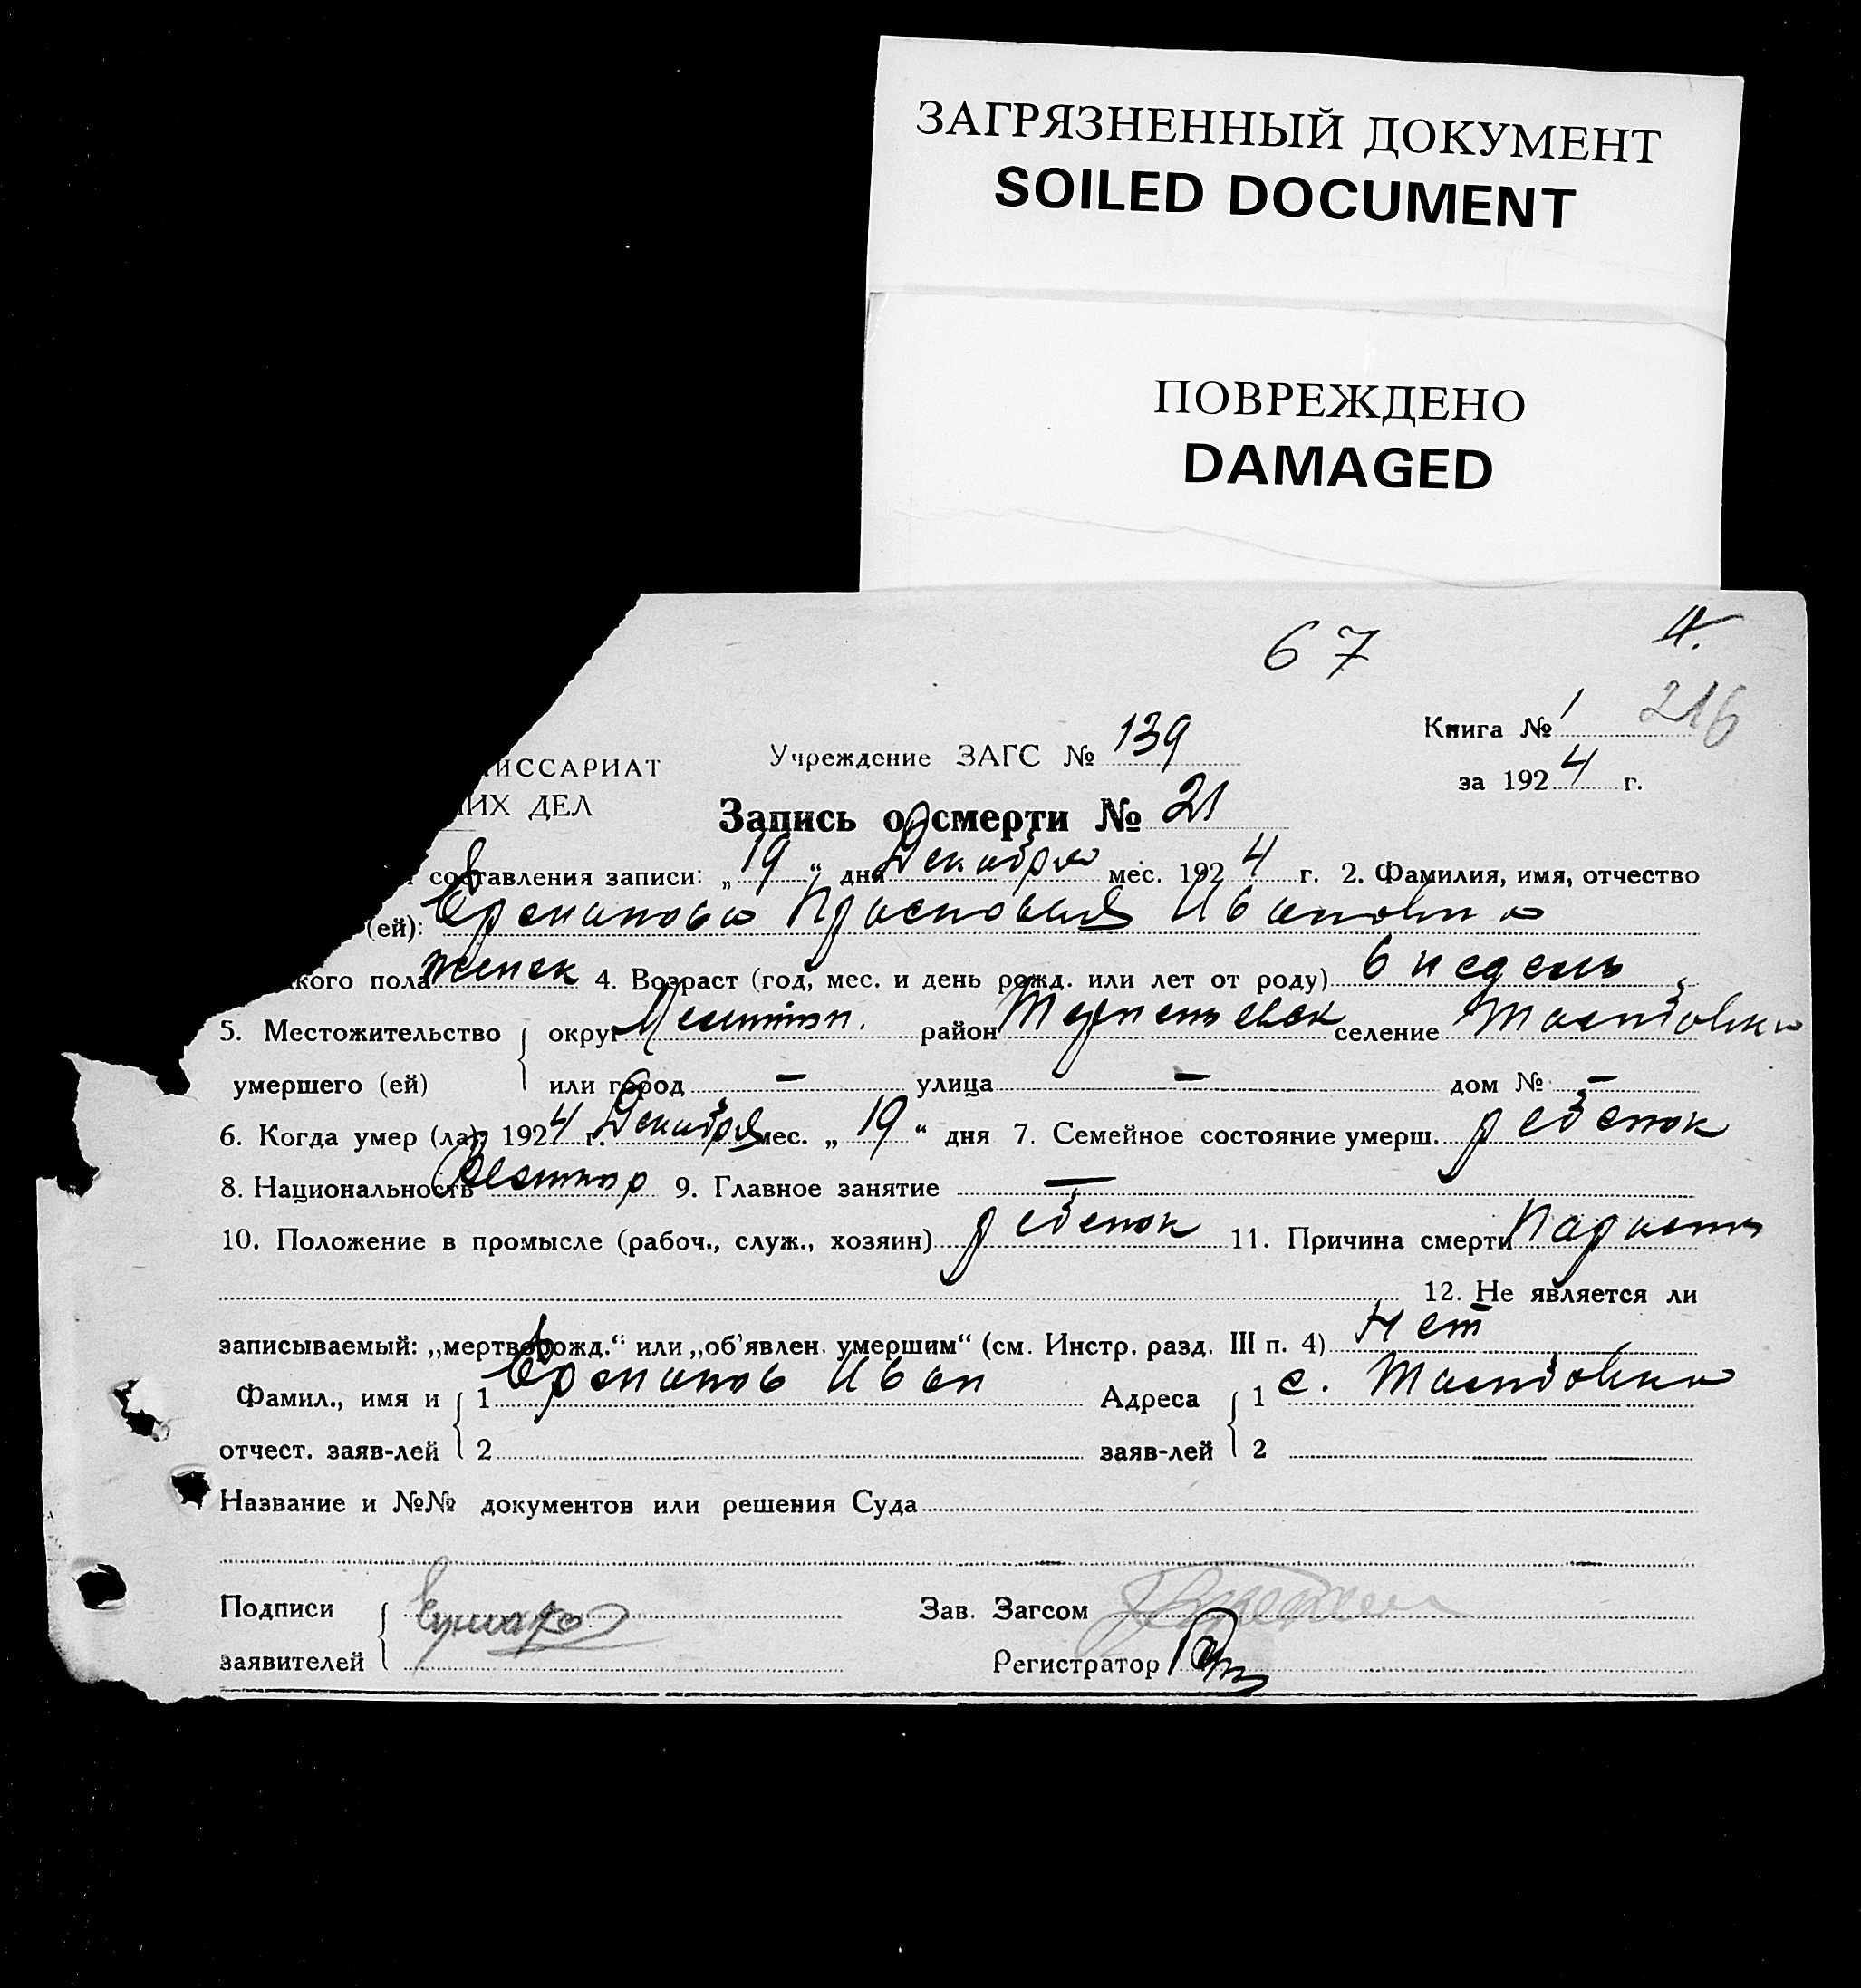 ЗАГРЯЗНЕННЫЙ ДОКУМЕНТ
SOILED DOCUMENT
ПОВРЕЖДЕНО
DAMAGED
67
216
Книга № 1
ИССАРИАТ Учреждение ЗАГС № 139
за 1924 г.
ИХ ДЕЛ Запись о смерти № 21
составления записи: „19“ дня Декабря мес. 1924 г. 2. Фамилия, имя, отчество
(ей): Ермакова Прасковья Ивановна
кого пола женск 4. Возраст (год, мес. и день рожд. или лет от роду) 6 недель
5. Местожительство округ район селение
умершего (ей) или город — улица — дом № —
6. Когда умер (ла) 1924 г. Декабря мес. „19“ дня 7. Семейное состояние умерш. ребенок
8. Национальность 9. Главное занятие —
10. Положение в промысле (рабоч., служ., хозяин) ребенок 11. Причина смерти
12. Не является ли
записываемый: „мертворожд.“ или „об'явлен. умершим“ (см. Инстр. разд. III п. 4) Нет
Фамил., имя и 1 Ермаков Иван Адреса 1 с.
отчест. заяв-лей 2 заяв-лей 2
Название и №№ документов или решения Суда
Подписи Зав. Загсом
заявителей Регистратор